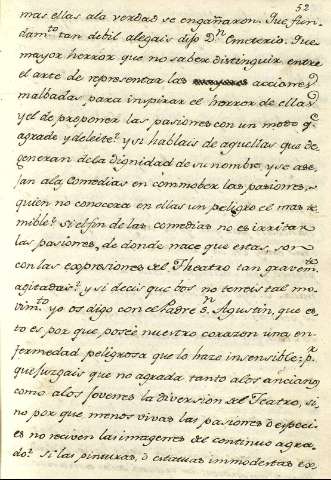 52
mas ellas ala verdad se engañaron. Que fun-
dam.to tan debil alegais dijo D.n Emeterio. Que
mayor herror que no saber distinguir entre
el arte de representar las acciones
malbadas para inspirar el horror de ellas
y el de proponer las pasiones con un modo q.e
agrade y deleite? y si hablais de aquellas que de-
generan de la Dignidad de su nombre y se ase-
jan ala Comedias en commober las pasiones,
quien no conocera en ellas un peligro el mas te-
mible? Si el fin de las comedias no es irritar
las pasiones, de donde nace que estas, son
con las expresiones del Theatro tan gravem.te
agitadas? y si decis que bos no teneis tal mo-
vim.to yo os digo con el Padre S.n Agustin, que es-
to es por que poseé nuestro corazon una en-
fermedad peligrosa que lo haze insensible: p.r
que juzgais que no agrada tanto alos ancianos
como alos jovenes la diversion del Teatro, si-
no por que menos vivas las pasiones o especi-
es no reciven las imagenes del continuo agra-
do? Si las pinturas, o estatuas immodestas ex-